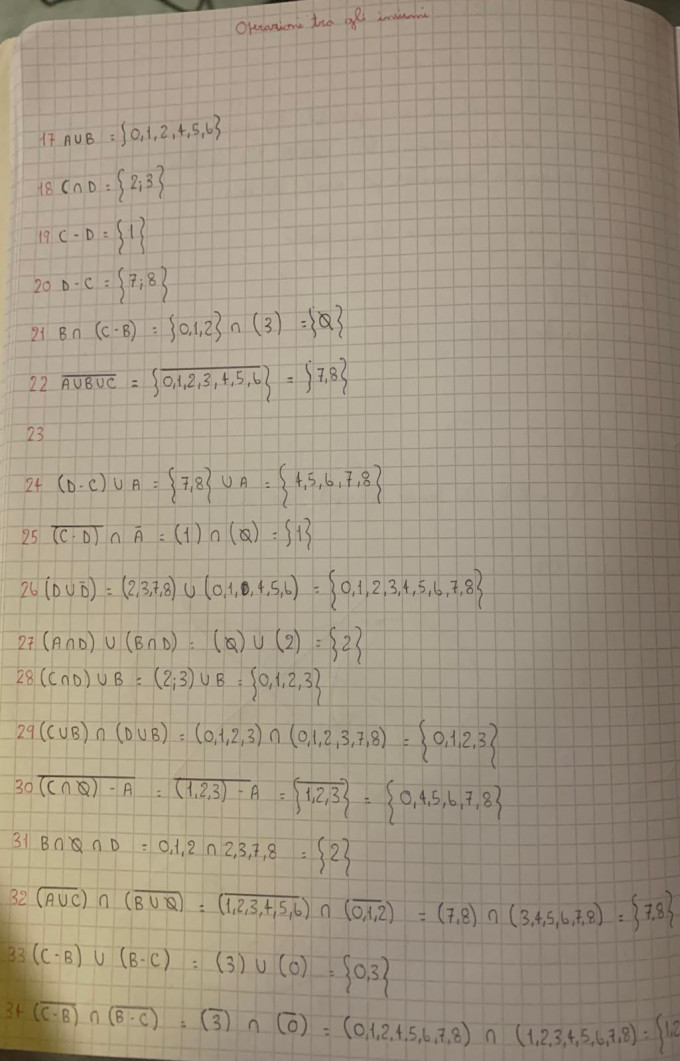 Operazioni tra gli insiemi
17 A∪B = {0,1,2,4,5,6}
18 C∩D = {2;3}
19 C-D = {1}
20 D-C = {7;8}
21 B∩(C-B) = {0,1,2}∩(3) = {∅}
22 \overline{A∪B∪C} = {\overline{0,1,2,3,4,5,6}} = {7,8}
23
24 (D-C)∪A = {7,8}∪A = {4,5,6,7,8}
25 \overline{(C-D)}∩Ā = (1)∩(∅) = {1}
26 (D∪D̄) = (2,3,7,8)∪(0,1,0,4,5,6) = {0,1,2,3,4,5,6,7,8}
27 (A∩D)∪(B∩D) = (∅)∪(2) = {2}
28 (C∩D)∪B = (2;3)∪B = {0,1,2,3}
29 (C∪B)∩(D∪B) = (0,1,2,3)∩(0,1,2,3,7,8) = {0,1,2,3}
30 \overline{(C∩∅)-A} = \overline{(1,2,3)-A} = {\overline{1,2,3}} = {0,4,5,6,7,8}
31 B∩∅∩D = 0,1,2∩2,3,7,8 = {2}
32 (\overline{A∪C})∩(\overline{B∪∅}) = (\overline{1,2,3,4,5,6})∩(\overline{0,1,2}) = (7,8)∩(3,4,5,6,7,8) = {7,8}
33 (C-B)∪(B-C) = (3)∪(0) = {0,3}
34 (\overline{C-B})∩(\overline{B-C}) = (\overline{3})∩(\overline{0}) = (0,1,2,4,5,6,7,8)∩(1,2,3,4,5,6,7,8) = {1,2